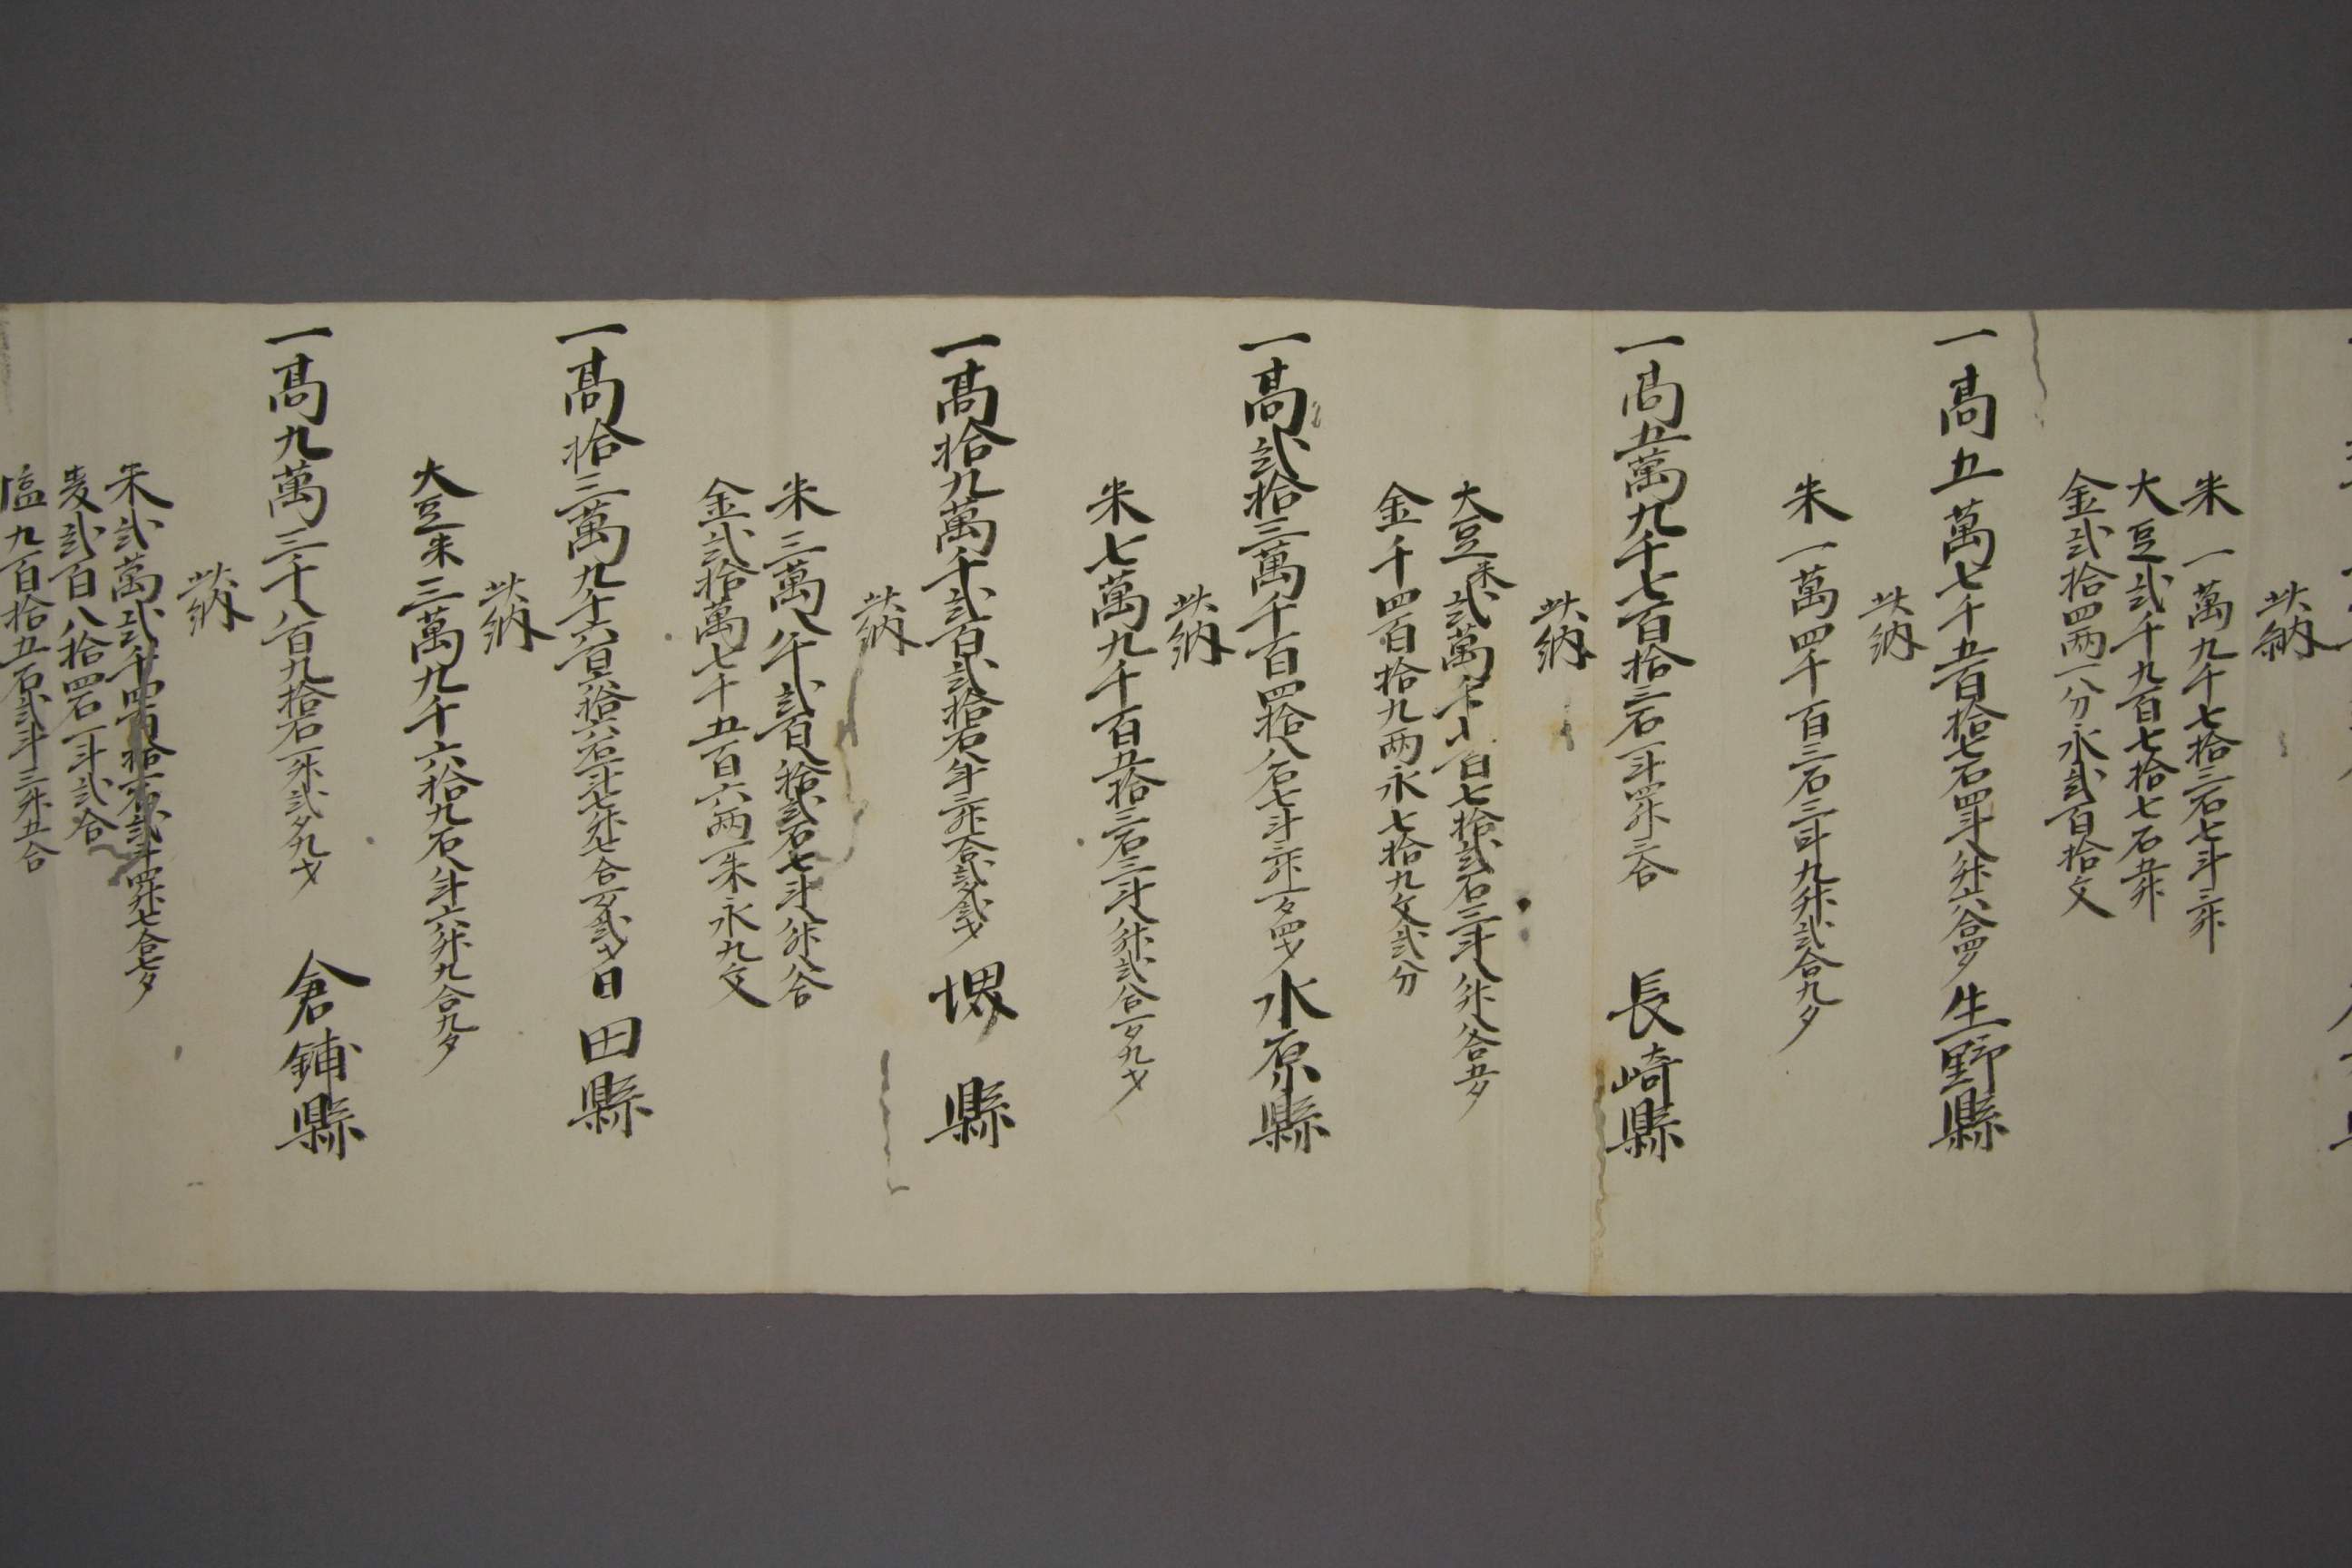 此納
米一萬九千七拾三石七斗三升
大豆弐千九百七拾七石五升
金弐拾四両一分永弐百拾文
一高五萬七千五百拾七石四斗八升六合四夕 生野縣
此納
米一萬四千百三石三斗九升弐合九夕
一高五萬九千七百拾三石一斗四升三合 長崎縣
此納
大豆米弐萬千 百七拾弐石三斗八升八合五夕
金千四百拾九両永七拾九文弐分
一高弐拾三萬千百四拾八石七斗三升一夕四才 水原縣
此納
米七萬九千百五拾三石三斗八升弐合一夕九才
一高拾九萬千弐百弐拾石八斗三升一合弐夕弐才 堺縣
此納
米三萬八千弐百八拾弐石七斗八升八合
金弐拾萬七千五百六両一朱永九文
一高拾三萬九千六百六拾六石一斗七升七合一夕弐才 日田縣
此納
大豆米三萬九千六拾九石八斗六升九合九夕
一高九萬三千八百九拾石一升弐夕九才 倉鋪縣
此納
米弐萬弐千四百拾 石弐斗四升七合七夕
麦弐百八拾四石一斗弐合
塩九百拾五石弐斗三升五合